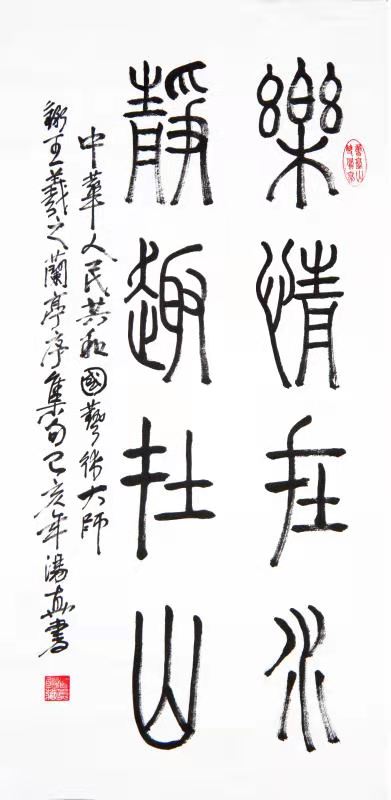 樂情在水
靜趣在山
中華人民共和國藝術大師
錄王羲之蘭亭序集句己亥年湯真書